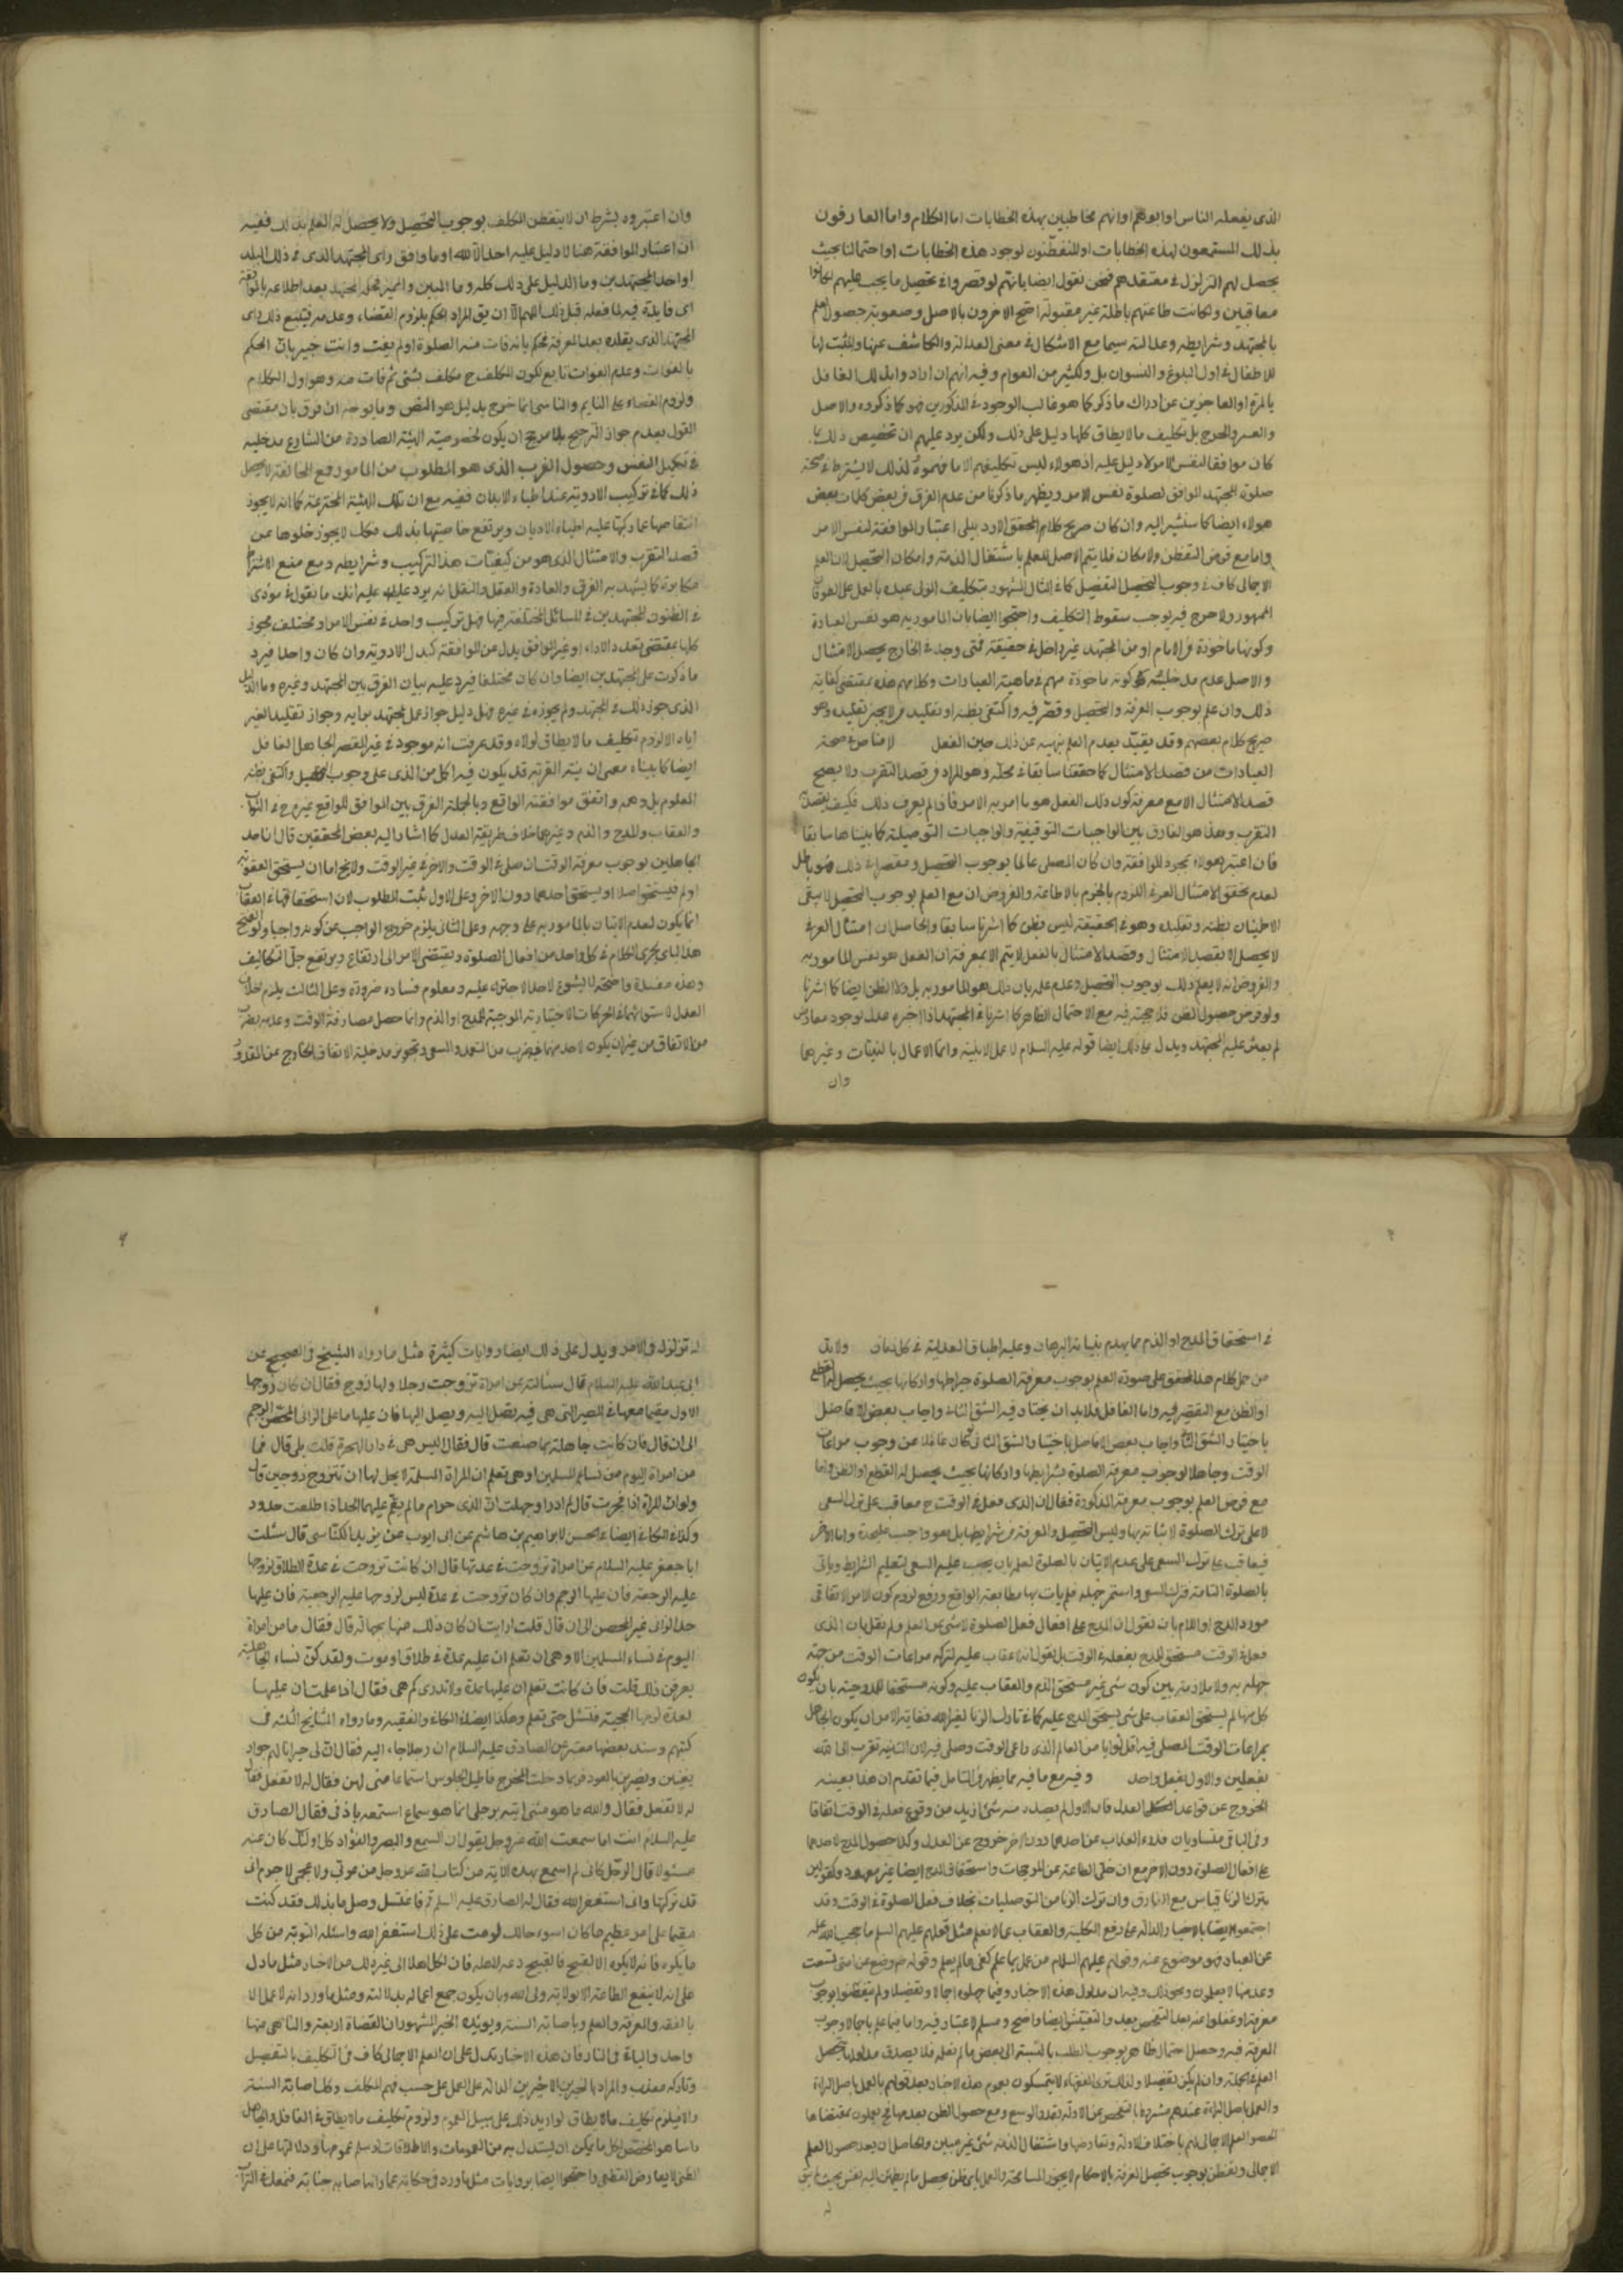 الذى يفعله الناس او ابوهم او انهم مخاطبين بهذه الخطابات اما الكلام واما العارفون
بذلك المستمعون لهذه الخطابات او المتفطّنون لوجود هذه الخطابات او احتمالنا بحيث
يحصل لهم التزلزل فى معتقدهم فنحن نقول ايضا بانهم لو قصروا فى تحصيل ما يجب عليهم لكانوا
معاقبين ولكانت طاعتهم باطلة غير مقبولة احتج الاخرون بالاصل وصعوبة حصول العلم
بالمجتهد وشرايطه وعدالته سيما مع الاشكال فى معنى العدالة والكاشف عنها والمثبت لها
للاطفال فى اول البلوغ والنسوان بل ولكثير من العوام وفيه انهم ان ارادوا بذلك الغافل
بالمرة او العاجزين عن ادراك ما ذكر كما هو غالب الوجود فى المذكورين فهو كما ذكروه والاصل
والعسر والحرج بل تكليف ما لا يطاق كلها دليل على ذلك ولكن يرد عليهم ان تخصيص ذلك بما
كان موافقا لنفس الامر لا دليل عليه اذ هولاء ليس تكليفهم الا ما فهموه لذلك لا يشترط فى صحة
صلوة المجتهد الموافق لصلوة نفس الامر ويظهر ما ذكرنا من عدم الفرق فى بعض كلمات بعض
هولاء ايضا كما سنشير اليه وان كان صريح كلام المحقق الاردبيلى اعتبار الموافقة لنفس الامر
واما مع فرض التفطن والامكان فلا يتم الاصل للعلم باشتغال الذمة وامكان التحصيل لان العلم
الاجمالى كاف فى وجوب التحصيل التفصيل كما فى المثال المشهور متكليف المولى عبده بالعمل على
الممهور ولا حرج فيه يوجب سقوط التكليف واحتجوا ايضا بان المامور به هو نفس العبادة
وكونها ماخوذة من الامام او من المجتهد غير داخل فى حقيقته فمتى وجد فى الخارج يحصل الامتثال
والاصل عدم مدخلية كونه ماخوذة مهم فى ماهية العبادات وكلامهم هذه بمقتضى كفاية
ذلك وان علم بوجوب المعرفة والتحصيل وقصّر فيه واكتفى بظنه او تقليد من لا يجوز تقليده وهو
صريح كلام بعضهم وقد يقيّد بعدم العلم بنهيه عن ذلك حين الفعل لا مناص فى صحة
العبادات من قصد الامتثال كما حققنا سابقا فى محله وهو المراد من قصد التقرب ولا يصح
قصد الامتثال الا مع معرفة كون ذلك الفعل هو ما امر به الامر فان لم يعرف ذلك فكيف يقصد
التقرب وهذا هو الفارق بين الواجبات التوقيفية والواجبات التوصيلة كما بيناها سابقا
فان اعتبر هولاء مجرد الموافقة وان كان المصلى عالما بوجوب التحصيل ومقصرا فى ذلك فهو باطل
لعدم تحقق الامتثال العرفى اللزوم بالجزم بالاطاعة والفروض ان مع العلم بوجوب التحصيل لا يبقى
الاطمينان بظنه وتقليده وهو فى الحقيقة ليس بظن كما اشرنا سابقا والحاصل ان امتثال العرفى
لا يحصل الا بقصد الامتثال وقصد الامتثال بالفعل لا يتم الا بمعرفة ان الفعل هو نفس المامور به
والفروض انه لا يعلم ذلك بوجوب التحصيل وعدم علمه بان ذلك هو المامور به بل ولا الظن ايضا كما اشرنا
ولو فرض حصول الظن فلا حجية فيه مع الاحتمال الظاهر كما اشرنا فى المجتهد اذا اخبره عدل بوجود معارض
لم يعثر عليه المجتهد ويدل على ذلك ايضا قوله عليه السلام لا عمل الا بنية وانما الاعمال بالنيات وغيرهما
وان
وان اعتبروه بشرط ان لا يتفطن المكلف بوجوب التحصيل ولا يحصل له العلم بذلك ففيه
ان اعتبار الموافقة هنا لا دليل عليه احدا لا لله او ما وافق راى المجتهد الذى فى ذلك البلد
او احد المجتهدين وما الدليل على ذلك كله وما المبين والمميز محله لمجتهد بعد اطلاعه بالموافقة
اى فايدة فيه لما فعله قبل ذلك اللهم الا ان يق المراد الحكم بلزوم القضاء وعدمه فيتبع ذلك راى
المجتهد الذى يقلده بعد المعرفة فحكم بانه فات منه الصلوة او لم يفت وانت خبير بان الحكم
بالفوات وعدم الفوات تابع لكون المكلف ح مكلف بشئ ثم فات منه وهو اول الكلام
ولزوم القضاء على النايم والناسى انما خرج بدليل هو النص وما يوخذ ان فرق بان مقتضى
القول بعدم جواز الترجيح بلا مرجح ان يكون لخصوصية الهيئة الصادرة من الشارع مدخلية
فى تكميل النفس وحصول القرب الذى هو المطلوب من المامور فمع المخالفة لا يحصل
ذلك كما فى تركيب الادوية عند اطباء الابدان ففيه مع ان تلك الهيئة المخترعة كما انه لا يجوز
انتقاصها عما ركبها عليه اطباء الاديان ويرتفع خاصيتها بذلك فكك لا يجوز خلوها عن
قصد التقرب والامتثال الذى هو من كيفيات هذا التركيب وشرايطه ومع منع الاشتراط
مكابرة كما يشهد به العرف والعادة والعقل والنقل انه يرد عليه انك ما تقول فى مودى
فى الظنون المجتهدين فى المسائل المختلفة فيها فهل تركيب واحد فى نفس الامر او مختلف مجوز
كلها بمقتضى تعدد الاداء او غير الموافق بدل عن الموافقة كبدل الادوية وان كان واحدا فيرد
ما ذكرت على المجتهدين ايضا وان كان مختلفا فيرد عليه بيان الفرق بين المجتهد وغيره وما الدليل
الذى جوز ذلك فى المجتهد ولم يجوزه فى غيره وهل دليل جواز عمل مجتهد برايه وجواز تقليد الغير
اياه الا لزوم تكليف ما لا يطاق لولاه وقد عرفت انه موجود فى غير المقصر الجاهل الغافل
ايضا كما بيناه معهان يتم القربة قد يكون فيه اكل من الذى على وجوب التحصيل واكتفى بظنه
المعلوم بل وهمه واتفق موافقته الواقع وبالجملة الفرق بين الموافق للواقع غيره ح فى الثواب
والعقاب والمدح والذم وغيرهما خلاف طريقة العدل كما اشار اليه بعض المحققين قال انا مد
الجاهلين بوجوب معرفة الوقت ان صلى فى الوقت والاخر فى غير الوقت ولا يخ اما ان يستحق العقوبة
اولم يستحق اصلا او يستحق احدهما دون الاخر وعلى الاول يثبت المطلوب لان استحقاقهما العقاب
انما يكون لعدم الاتيان بالمامور به على وجهه وعلى الثانى يلزم خروج الواجب عن كونه واجبا ولو فتح
هذا الباب يجرى الكلام فى كل واحد من افعال الصلوة ويقتضى الامر الى ارتفاع ويرتفع جلّ التكاليف
وهذه مفسدة واضحة لا يسوغ لاحد الاجتراء عليه ومعلوم فساده ضرورة وعلى الثالث يلزم خلاف
العدل لاستوائهما فى الحركات الاختيارية الموجبة للمدح او الذم وانما حصل مصادفة الوقت وعدمه بضرب
من الاتفاق من غير ان يكون لاحد منهما فيه ضرب من التعمد والسعى وتجويز مدخلية الاتفاق الخارج عن المقدور
فى استحقاق المدح او الذم مما يهدم بنيانه البرهان وعليه اطباق العدلية فى كل زمان ولا بد
من حمل كلام هذا المحقق على صورة العلم بوجوب معرفة الصلوة شرايطها واركانها بحيث يحصل له القطع
او الظن مع التقصير فيه واما الغافل فلا بد ان يختار فيه الشق الثانى واجاب بعض الافاضل
باختيار الشق الثانى واجاب بعض الافاضل باختيار الشق الثانى فكان غافلا عن وجوب مراعات
الوقت وجاهلا لوجوب معرفة الصلوة بشرايطها واركانها بحيث يحصل له القطع او الظن واما
مع فرض العلم بوجوب معرفة المذكورة فقال ان الذى فعل فى الوقت ح معاقب على ترك السعى
لا على ترك الصلوة لاتيانه بها وليس التحصيل والمعرفة من شرايطها بل هو واجب عليحدة واما الاخر
فيعاقب على ترك السعى على عدم الاتيان بالصلوة لعلم بان يجب عليه السعى لتعليم الشرايط وياتى
بالصلوة التامة فترك السعى واستمر جهله فلم يات بها مطابقة الواقع ودفع لزوم كون الامر الاتفاقى
مورد المدح او اللام بان نقول ان المدح على افعال فعل الصلوة لا شئ عن العلم ولم نقل بان الذى
فعل فى الوقت مستحق للمدح بفعله فى الوقت بل نقول انه لا عقاب عليه لتركه مراعات الوقت من جهة
جهله به ولا ملازمة بين كون شئ غير مستحق الذم والعقاب عليه وكونه مستحقا للمدوحية بان يكون
كل منهما لم يستحق العقاب على شئ يستحق المدح عليه كما فى تارك الزنا لغير الله فغاية الامر ان يكون الجاهل
بمراعات الوقت المصلى فيه اقل ثوابا من العالم الذى راعى الوقت وصلى فيه لان الثانية تقرب الى الله
بفعلين والاول بفعل واحد وفيه مع ما فيه مما يظهر فى التامل فيما تقدم ان هذا بعينه
الخروج عن قواعد العدل فان الاول لم يصدر منه شئ ازيد من وقوع فعله فى الوقت اتفاقا
وفى الباقى متساويان فلا العذاب عن احدهما دون الاخر خروج عن العدل وكذا حصول المدح لاحدهما
على افعال الصلوة دون الاخر مع ان خلى الطاعة عن الموجبات واستحقاق المدح ايضا غير معهود
بترك الزنا قياس مع الفارق وان ترك الزنا من التوصليات بخلاف فعل الصلوة فى الوقت وقد
احتجوا ايضا بالاخبار الدالة على رفع الكلية والعقاب عما لا يعلم مثل قولهم عليهم السلم ما حجب الله علمه
عن العباد فهو موضوع عنه وقولهم عليهم السلام من عمل بما علم كفى ما لم يعلم وقوله وضع عن امتى تسعة
وعد منها لا يعلمون ونحو ذلك وفيه ان مدلول هذه الاخبار وفيما جهلوه اجمالا وتفصيلا ولم يتفطنوا بوجوب
معرفة او غفلوا عنه بعد التفحص بعد والتفتيش ايضا واضح ومسلم لا عتبار فيه واما فيما علم باجمالا وجوب
المعرفة فيه وحصل احتمال ظاهر بوجوب الطلب بالنسبة الى بعض ما لم يعلمه فلا يصدق مدلولها يحصل
العلم فى الجملة وان لم يكن تفصيلا ولذلك ترى الفقهاء لا يتمسكون بعموم هذه الاخبار بعد قولهم بالعمل باصل البراءة
والعمل باصل البراءة عندهم مشروط بالتفحص عن الادلة بقدر الوسع ومع حصول الظن بعدمها ح يعملون بمقتضاها
لحصول العلم الاجمالى لهم باختلاف الادلة وتعارضها واشتغال الذمة بشئ غير مبين والحاصل ان بعد حصول العلم
الاجمالى وتفطن بوجوب تحصيل المعرفة بالاحكام لا يجوز المسامحة والعمل باى ظن يحصل ما لم يطمئن اليه نفس بحيث لا يبقى
له
له تزلزل فى الامر ويدل على ذلك ايضا روايات كثيرة مثل ما رواه الشيخ فى الصحيح عن
ابى عبد الله عليه السلام قال سالته عن امراة تزوجت رجلا ولها زوج فقال ان كان زوجها
الاول مقيما معها فى المصر التى هى فيه تصل اليه ويصل اليها فان عليها ما على الزانى المحصن الرجم
الى ان قال فان كانت جاهلة بما صنعت قال فقال اليس هى فى دار الهجرة قلت بلى قال فما
من امراة اليوم من نساء المسلمين او هى تعلم ان المراة المسلمة لا يحل لها ان تتزوج زوجين قال
ولو ان المراة اذا فجرت قال لم ادر او جهلت انّ الذى حرام ما لم يقم عليها الحد اذا طلعت حدود
وكذا فى الكافى ايضا فى الحسن لابراهيم بن هاشم عن ابى ايوب عن يزيد الكناسى قال سئلت
ابا جعفر عليه السلام عن امراة تزوجت فى عدتها قال ان كانت تزوجت فى عدة الطلاق لزوجها
عليه الرجعة فان عليها الرجم وان كان تزوجت فى عدة ليس لزوجها عليه الرجعية فان عليها
حد الزانى غير المحصن الى ان قال قلت ارايت ان كان ذلك منها بجهالة قال فقال ما من امراة
اليوم فى نساء المسلمين الا وهى ان تعلم ان عليه عدة فى طلاق او موت ولقد كنّ نساء الجاهلية
يعرفن ذلك قلت فان كانت تعلم ان عليها عدة ولا تدرى كم هى فقال اذا علمت ان عليها
لعدة لزمها الحجية فتسئل حتى تعلم وهكذا ايضا فى الكافى والفقيه وما رواه المشايخ الثلثة فى
كتبهم وسند بعضها معتبر عن الصادق عليه السلام ان رجلا جاء اليه فقال ان لى جيرانا لهم جوار
يغنين ويضربن بالعود فربما دخلت المخرج فاطيل الجلوس استماعا منى لهن فقال له لا تفعل فقال
له لا تفعل فقال والله ما هو مشى اتيه برجلى انما هو سماع اسمعه باذنى فقال الصادق
عليه السلام انت اما سمعت الله عز وجل يقول ان السمع والبصر والفؤاد كل اولئك كان عنه
مسئولا قال الرجل كانى لم اسمع بهذه الاية من كتاب الله عز وجل من عربى ولا عجمى لا جرم انى
قد تركتها وانى استغفر الله فقال له الصادق عليه السلم قم فاغتسل وصل ما بدا لك فقد كنت
مقيما على امر عظيم ما كان اسوء حالك لو مت على ذلك استغفر الله واسئله التوبة من كل
ما يكره فانه لا يكره الا القبيح فالقبيح دعه لاهله فان لكل اهلا الى غير ذلك من الاخبار مثل ما دل
على انه لا ينفع الطاعة الا بولاية ولى الله وبان يكون جمع اعماله بدلالته ومثل ما ورد انه لا عمل الا
بالفقه والمعرفة والعلم وباصابة السنة ويويّده الخبر المشهور ان القضاة اربعة والناجى منها
واحد والباقى فى النار فان هذه الاخبار تدل على ان العلم الاجمالى كاف فى التكليف بالتفصيل
وتاركه معذب والمراد بالخبرين الاخيرين الدالة على العمل على حسب فهم المكلف وكذا صابة السنة
والا فيلزم تكليف ما لا يطاق لو اريد ذلك على سبيل العموم ولزوم تكليف ما لا يطاق فى الغافل والجاهل
راسا هو المخصص لكل ما يمكن ان يستدل به من العمومات والاطلاقات لو سلم عمومها ودلالتها على ان
الظنى لا يعارض القطعى واحتجوا ايضا بروايات مثل ما ورد فى حكاية عمار انها صابه جنابة فتمعك فى التراب